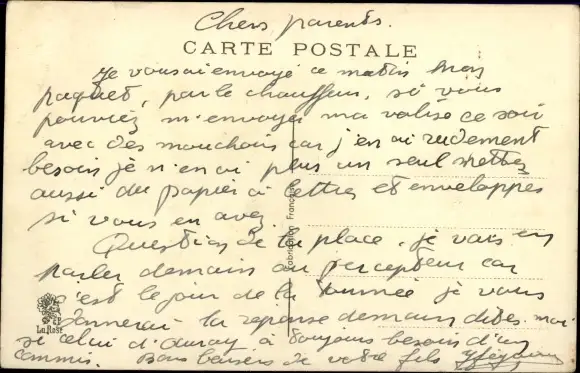 Chers parents.
CARTE POSTALE
Je vous ai envoyé ce matin mon
paquet, par le chauffeur, si vous
pouviez m'envoyer ma valise ce soir
avec des mouchoirs car j'en ai rudement
besoin je n'en ai plus un seul mettez
aussi du papier à lettres et enveloppes
si vous en avez
Question de la place, je vais en
parler demain au percepteur car
c'est le jour de la tournée je vous
donnerai la réponse demain dites-moi
si celui d'Auray a toujours besoin d'un
commis. Bons baisers de votre fils
Fabrication Française
La Rose